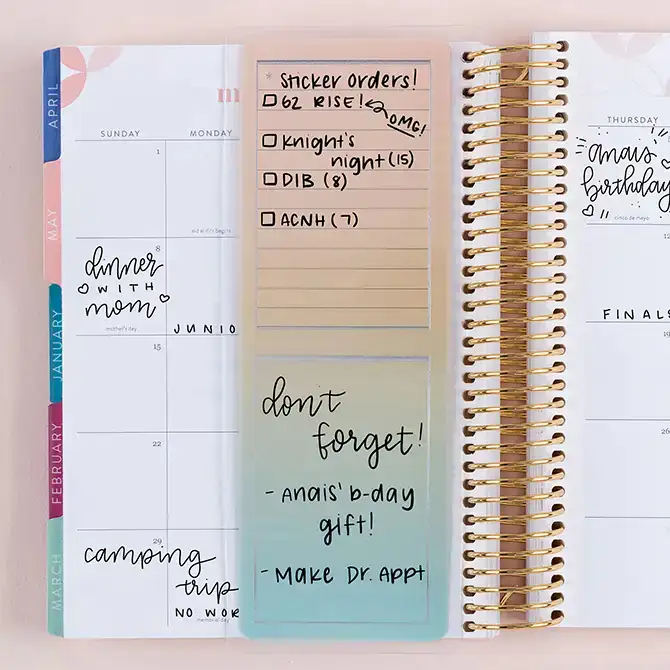 APRIL
MAY
JANUARY
FEBRUARY
MARCH
m
SUNDAY
MONDAY
1
eid al-fitr begins
8
dinner
WITH
mom
mother's day
JUNIO
15
22
29
camping
trip
NO WOR
memorial day
* Sticker orders!
62 RISE!
OMG!
Knight's
night (15)
DIB (8)
ACNH (7)
don't
forget!
- Anais' b-day
gift!
- Make Dr. Appt
THURSDAY
anais
birthday
cinco de mayo
12
FINALS
19
26